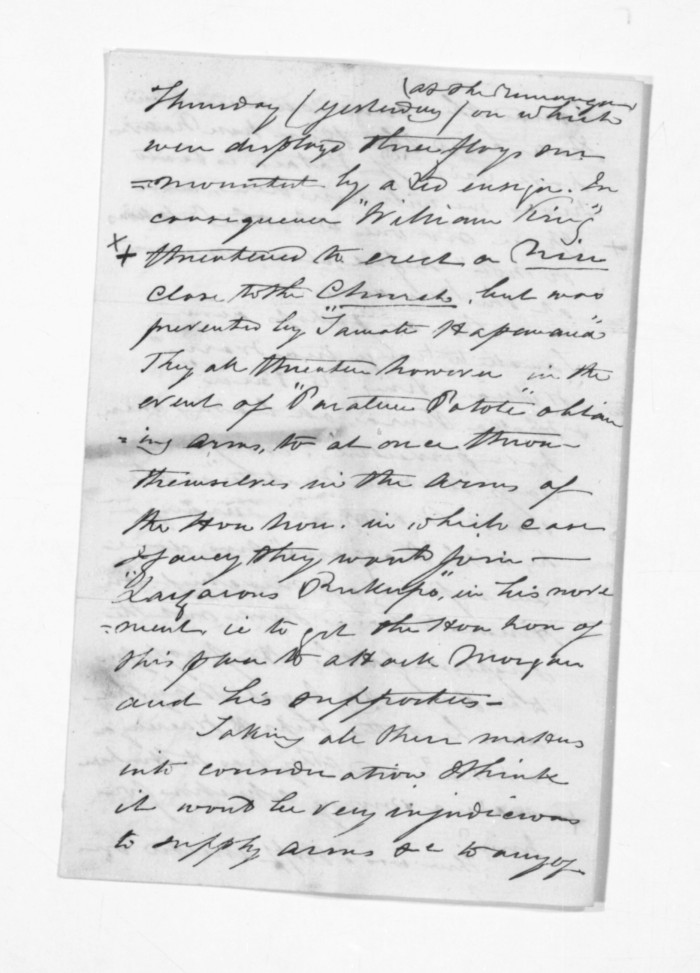 as the Remanga
Thursday (yesterday) on which
were displayed three flags sur
=mounted by a Red ensign. In
consequence "William King"
x+ threatened to erect a Niu
close to the Church, but was
prevented by "Tamati Hapuwaia"
They all threaten however in the
event of "Paratene Patoti" obtain
=ing arms, to at once throw
themselves in the arms of
the Hau hau. in which case
I fancy they would join —
"Lazarous Rukupo", in his move
=ment ie to get the Hau hau of
this place to attack Morgan
and his supporters —
Taking all these matters
into consideration I think
it would be very injudicious
to supply arms &c to any of